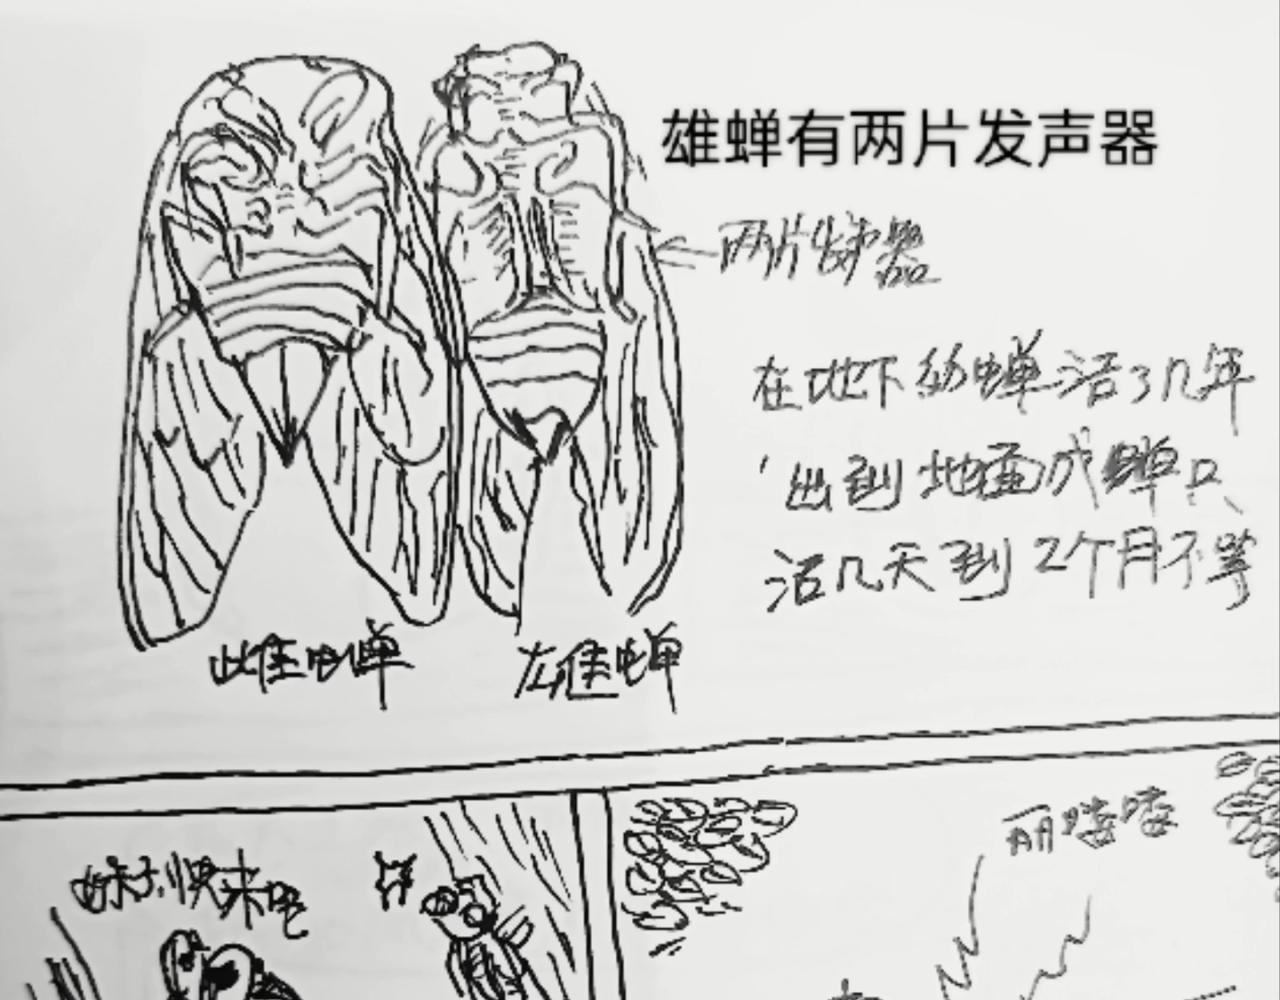 雄蝉有两片发声器
两片发声器
在地下幼蝉活了几年
出到地面成蝉只
活几天到2个月不等
雌蝉
雄蝉
妹子快来吧